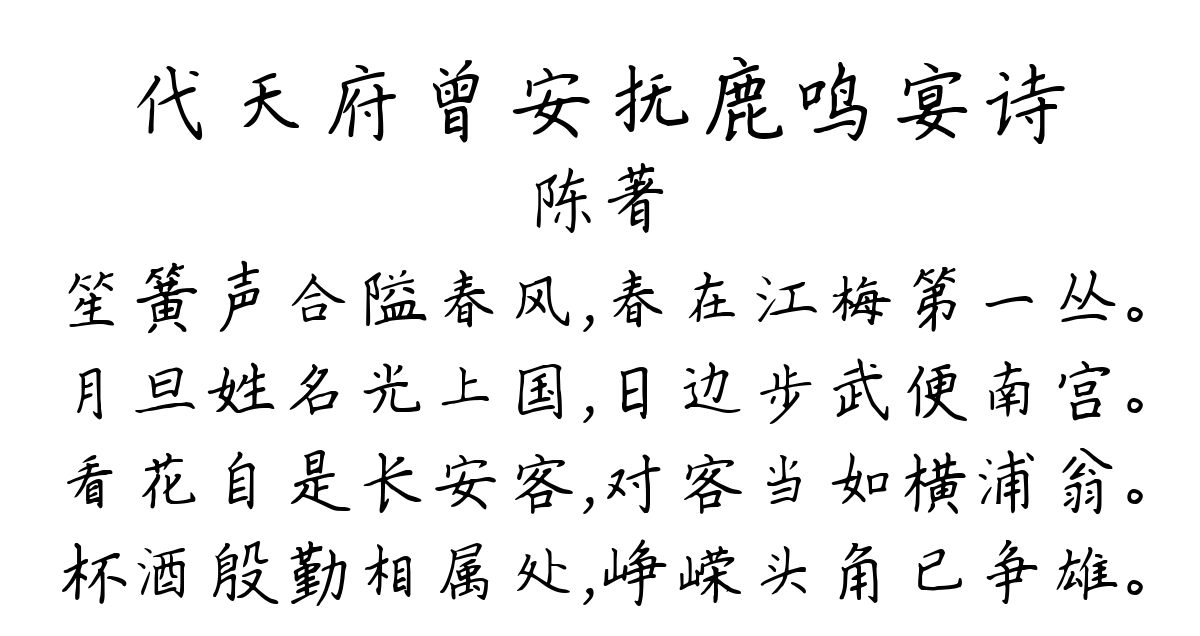 代天府曾安抚鹿鸣宴诗
陈著
笙簧声合隘春风,春在江梅第一丛。
月旦姓名光上国,日边步武便南宫。
看花自是长安客,对客当如横浦翁。
杯酒殷勤相属处,峥嵘头角已争雄。